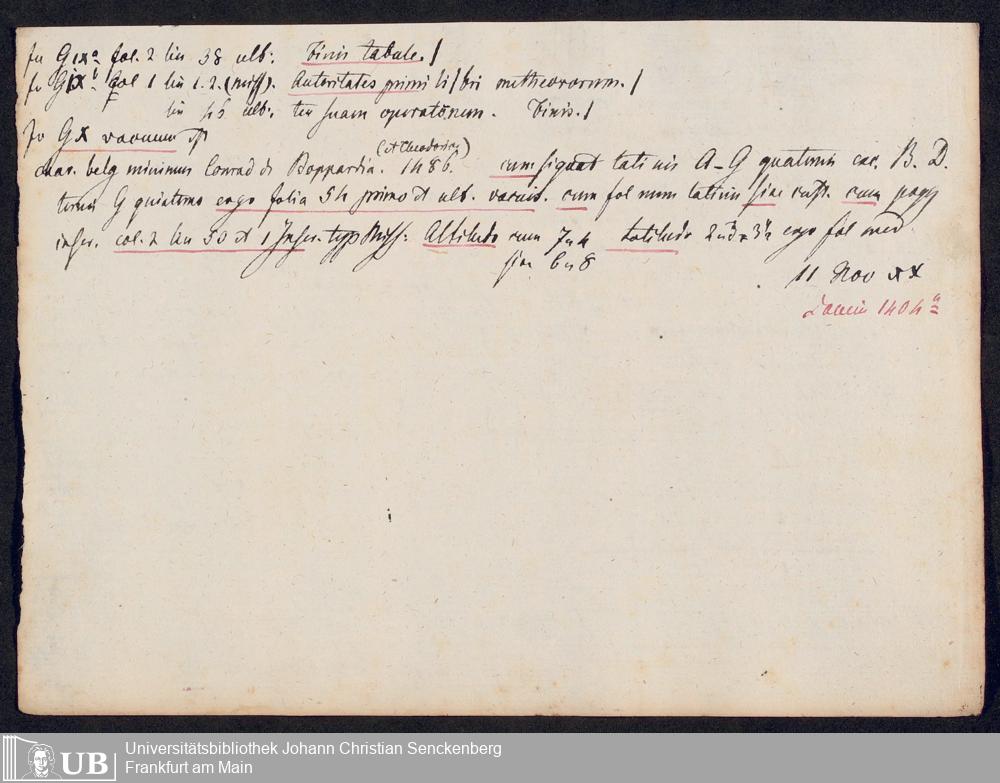 fo G ix a fol. 2 lin 38 ult: Finis tabule./
fo G ix b col 1 lin 1. 2. (miss). Autoritates primi li/bri metheororum./
lin 45 ult. tem suam operationem. Finis./
fo G x vacuum
char. belg minimus Conrad de Boppardia. (et Theodorici) 1486. cum signat latinis A-G quaternis exc. B. D.
ternis G quinterno ergo folia 54 primo et ult. vacuis. cum fol num latinis sine cust. cum pagg
col. 2 lin 50 et typ miss: Altitudo cum latitudo ergo fol med.
sine
11 Nov
1404 a
UB Universitätsbibliothek Johann Christian Senckenberg
Frankfurt am Main